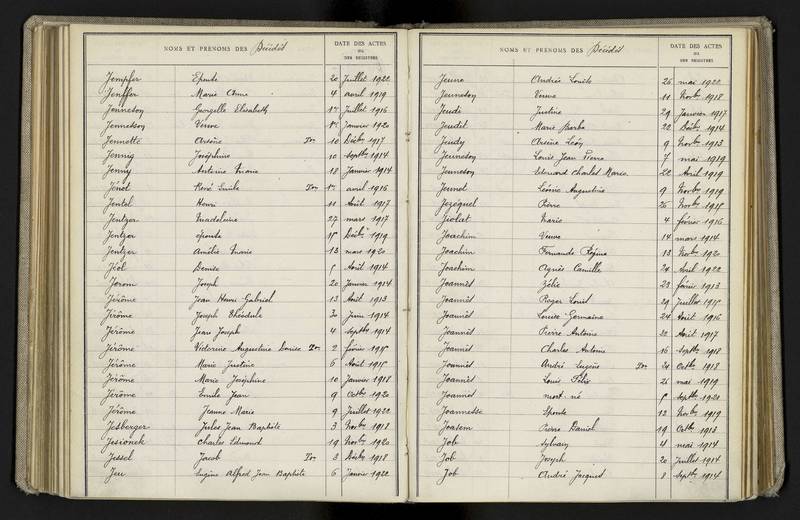 NOMS ET PRENOMS DES Décédés
DATE DES ACTES
OU
DES REGISTRES
Jempfer Epouse 20 Juillet 1922
Jenffer Marie Anne 4 avril 1919
Jenneson Georgette Elisabeth 1er Juillet 1916
Jennetson Veuve 1er Janvier 1920
Jennette Arsène Tr. 10 Décbre 1917
Jennig Joséphine 10 Septbre 1914
Jenny Antoine Marie 18 Janvier 1914
Jenot René Emile Tr. 1er avril 1916
Jentel Henri 11 Août 1917
Jentzer Madeleine 27 mars 1917
Jentzer épouse Décbre 1919
Jentzer Amélie Marie 13 mars 1920
Jéol Denise Août 1914
Jerom Joseph 20 Janvier 1914
Jérôme Jean Henri Gabriel 13 Août 1913
Jérôme Joseph Théodule Juin 1914
Jérôme Jean Joseph 4 Septbre 1914
Jérôme Victorine Augustine Tr. 2 février 1915
Jérôme Marie Justine 6 Août 1915
Jérôme Marie Joséphine 10 Janvier 1918
Jérôme Emile Jean 9 Octbre 1920
Jérôme Jeanne Marie 9 Juillet 1922
Jesberger Jules Jean Baptiste 3 Novbre 1918
Jesionek Charles Edmond 19 Novbre 1920
Jessel Jacob Tr. 3 Décbre 1918
Jeu Eugène Alfred Jean Baptiste 6 Janvier 1922
NOMS ET PRENOMS DES Décédés
DATE DES ACTES
OU
DES REGISTRES
Jeune Andrée Louise 26 mai 1922
Jeuneson Veuve 11 Novbre 1918
Jeude Justine 29 Janvier 1917
Jeudel Marie Barbe 22 Décbre 1914
Jeudy Arsène Léon 9 Novbre 1913
Jeuneson Louis Jean Pierre 7 mai 1919
Jeuneson Edouard Charles Marie 22 Avril 1919
Jeunot Léonie Augustine 9 Novbre 1919
Jezéquel Pierre 25 Novbre 1915
Jiolet Marie 4 février 1916
Joachim Veuve 14 mars 1914
Joachim Fernande Régina 13 Novbre 1920
Joachim Agnès Camille 24 Avril 1922
Joannès Zélie 23 février 1913
Joannès Roger Louis 29 Juillet 1915
Joannès Louise Germaine 24 Août 1916
Joannès Pierre Antoine 22 Août 1917
Joannès Charles Antoine 16 Septbre 1918
Joannès André Eugène Tr. Octbre 1918
Joannès Louis Félix 21 mai 1919
Joannot mort né Septbre 1920
Joannesse Epouse 12 Novbre 1919
Joasem Pierre Daniel 19 Octbre 1913
Job Sylvain 4 mai 1914
Job Joseph 20 Juillet 1914
Job André Jacques 8 Septbre 1914